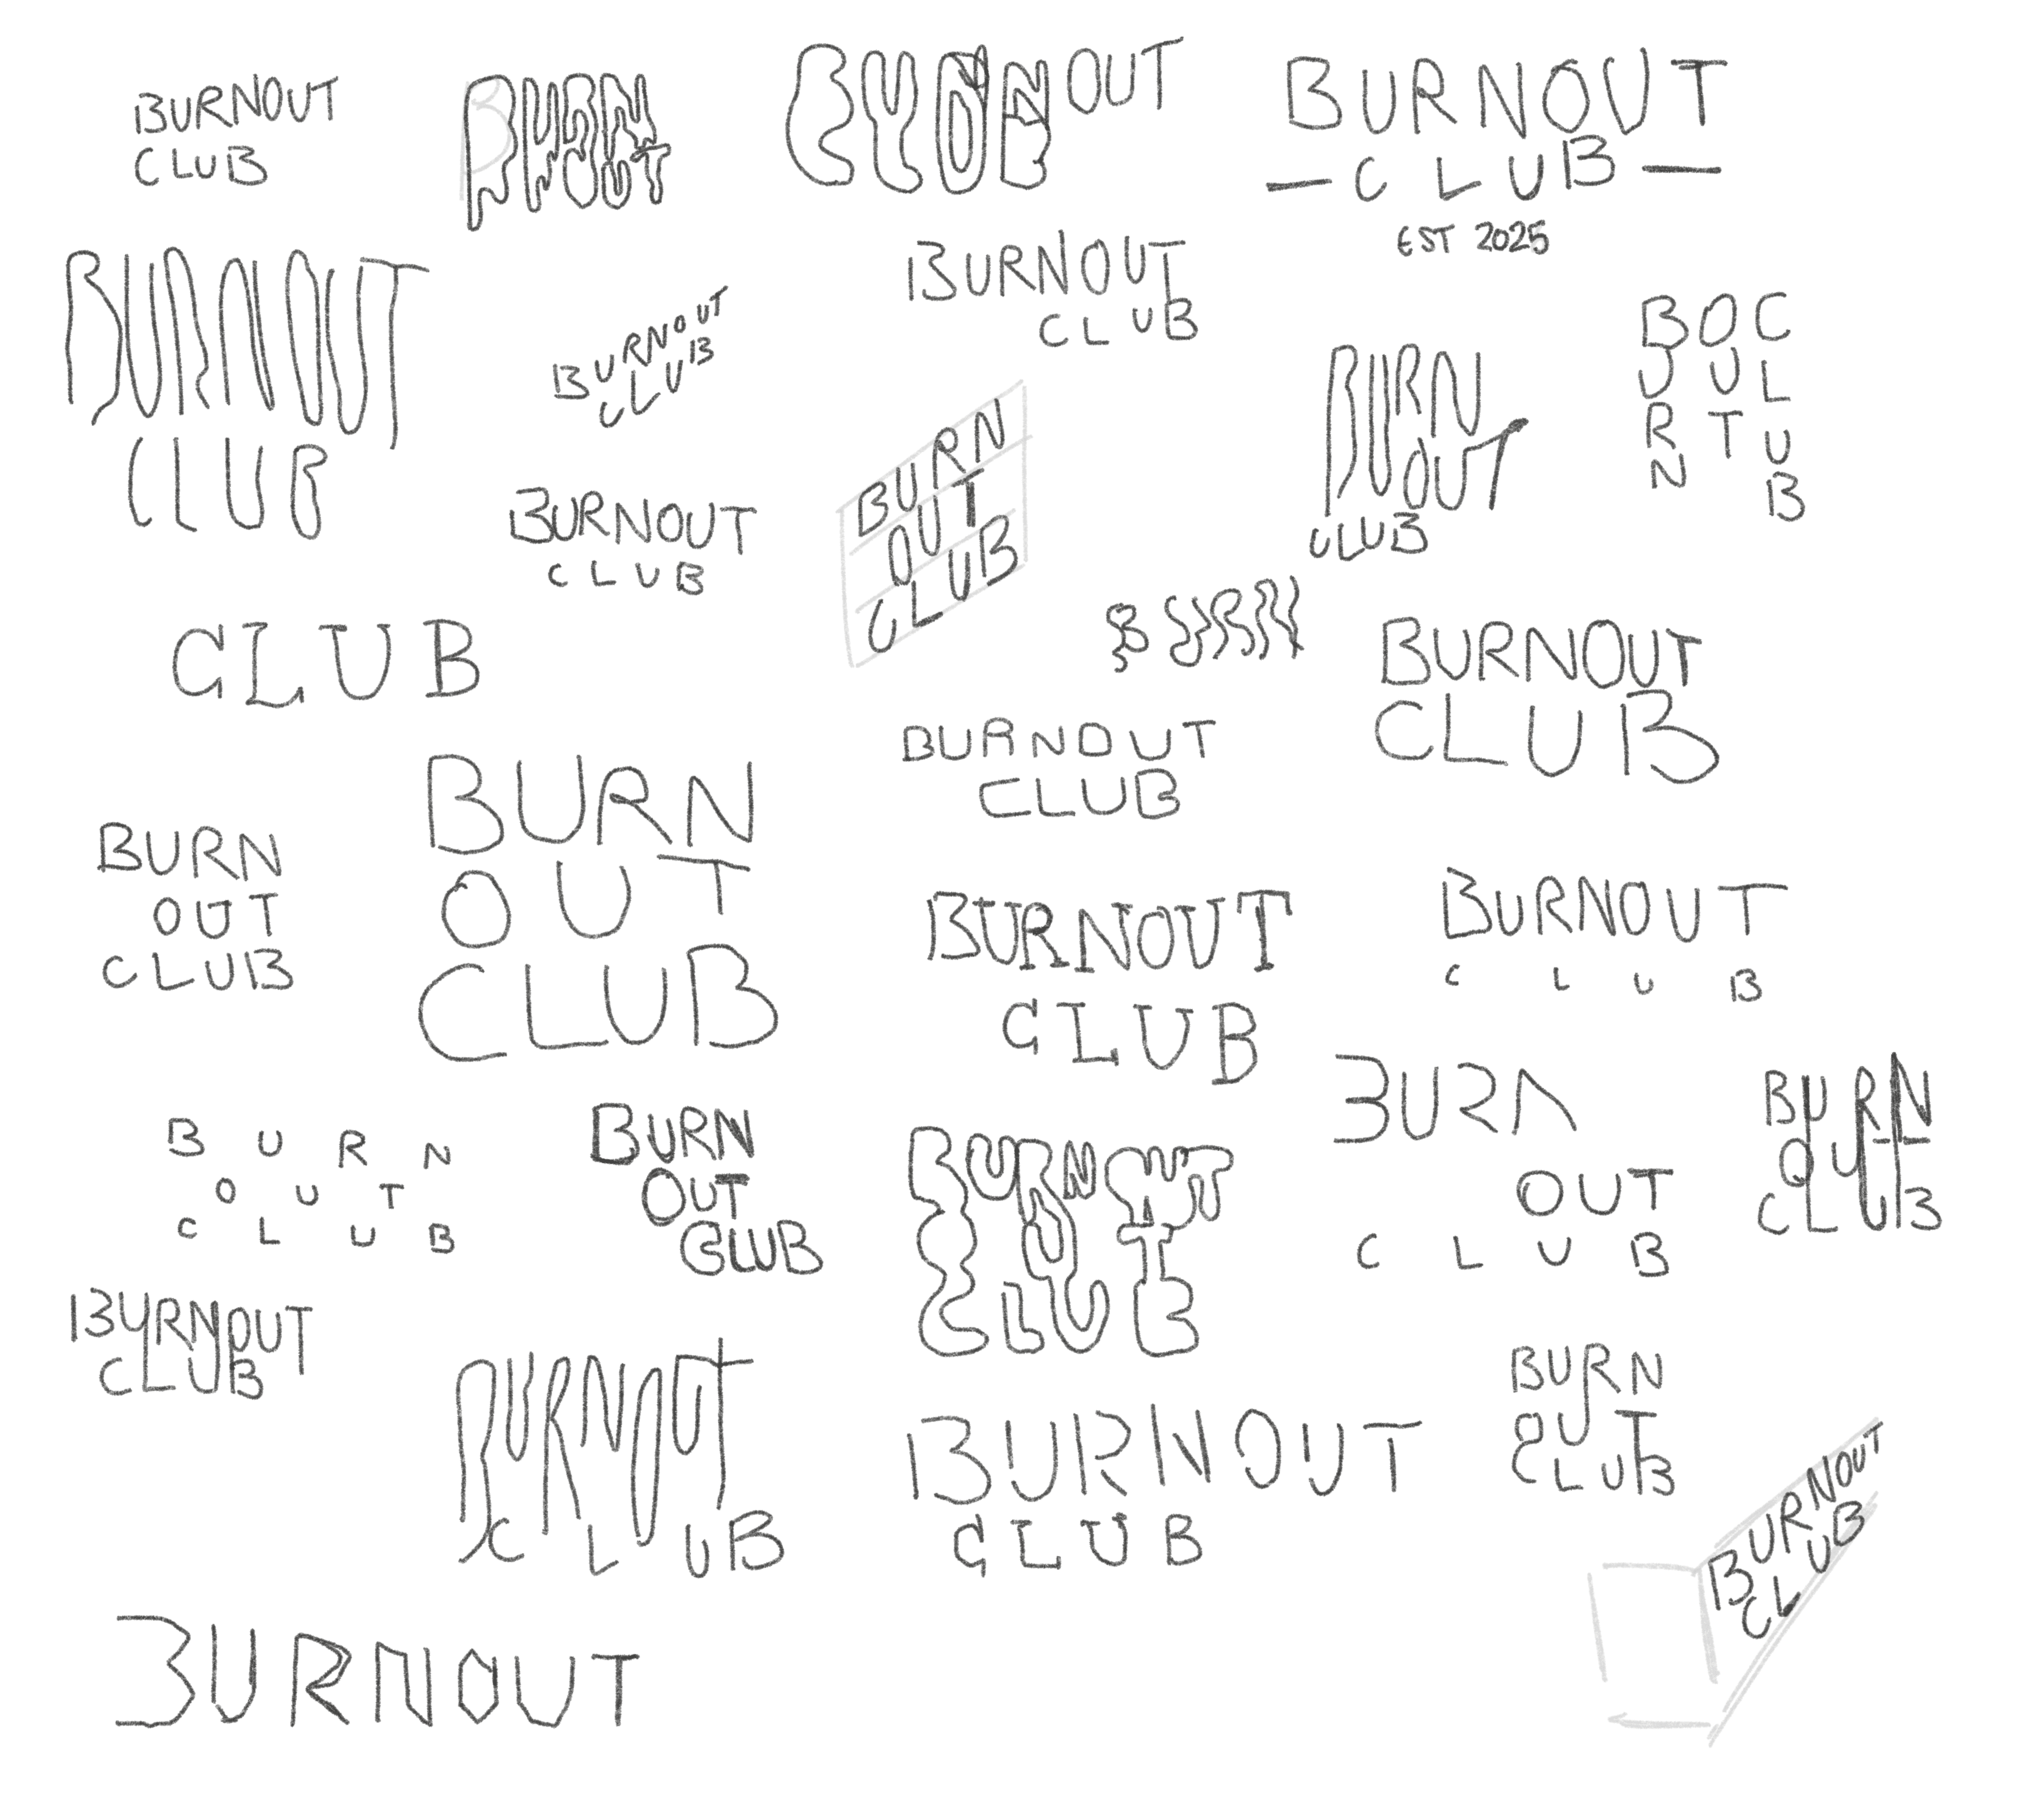 BURNOUT
CLUB
BURN
OUT
BURNOUT
BURNOUT
— CLUB —
EST 2025
BURNOUT
CLUB
BURNOUT
CLUB
BURNOUT
CLUB
BURN
OUT
CLUB
BOC
UUL
RTU
NB
BURNOUT
CLUB
BURN
OUT
CLUB
CLUB
BURN
BURNOUT
CLUB
BURNOUT
CLUB
BURN
OUT
CLUB
BURN
OUT
CLUB
BURNOUT
CLUB
BURNOUT
CLUB
BURN
OUT
CLUB
BURN
OUT
CLUB
BURNOUT
CLUB
BURN
OUT
CLUB
BURN
OUT
CLUB
BURNOUT
CLUB
BURNOUT
CLUB
BURNOUT
CLUB
BURN
OUT
CLUB
BURNOUT
CLUB
BURNOUT